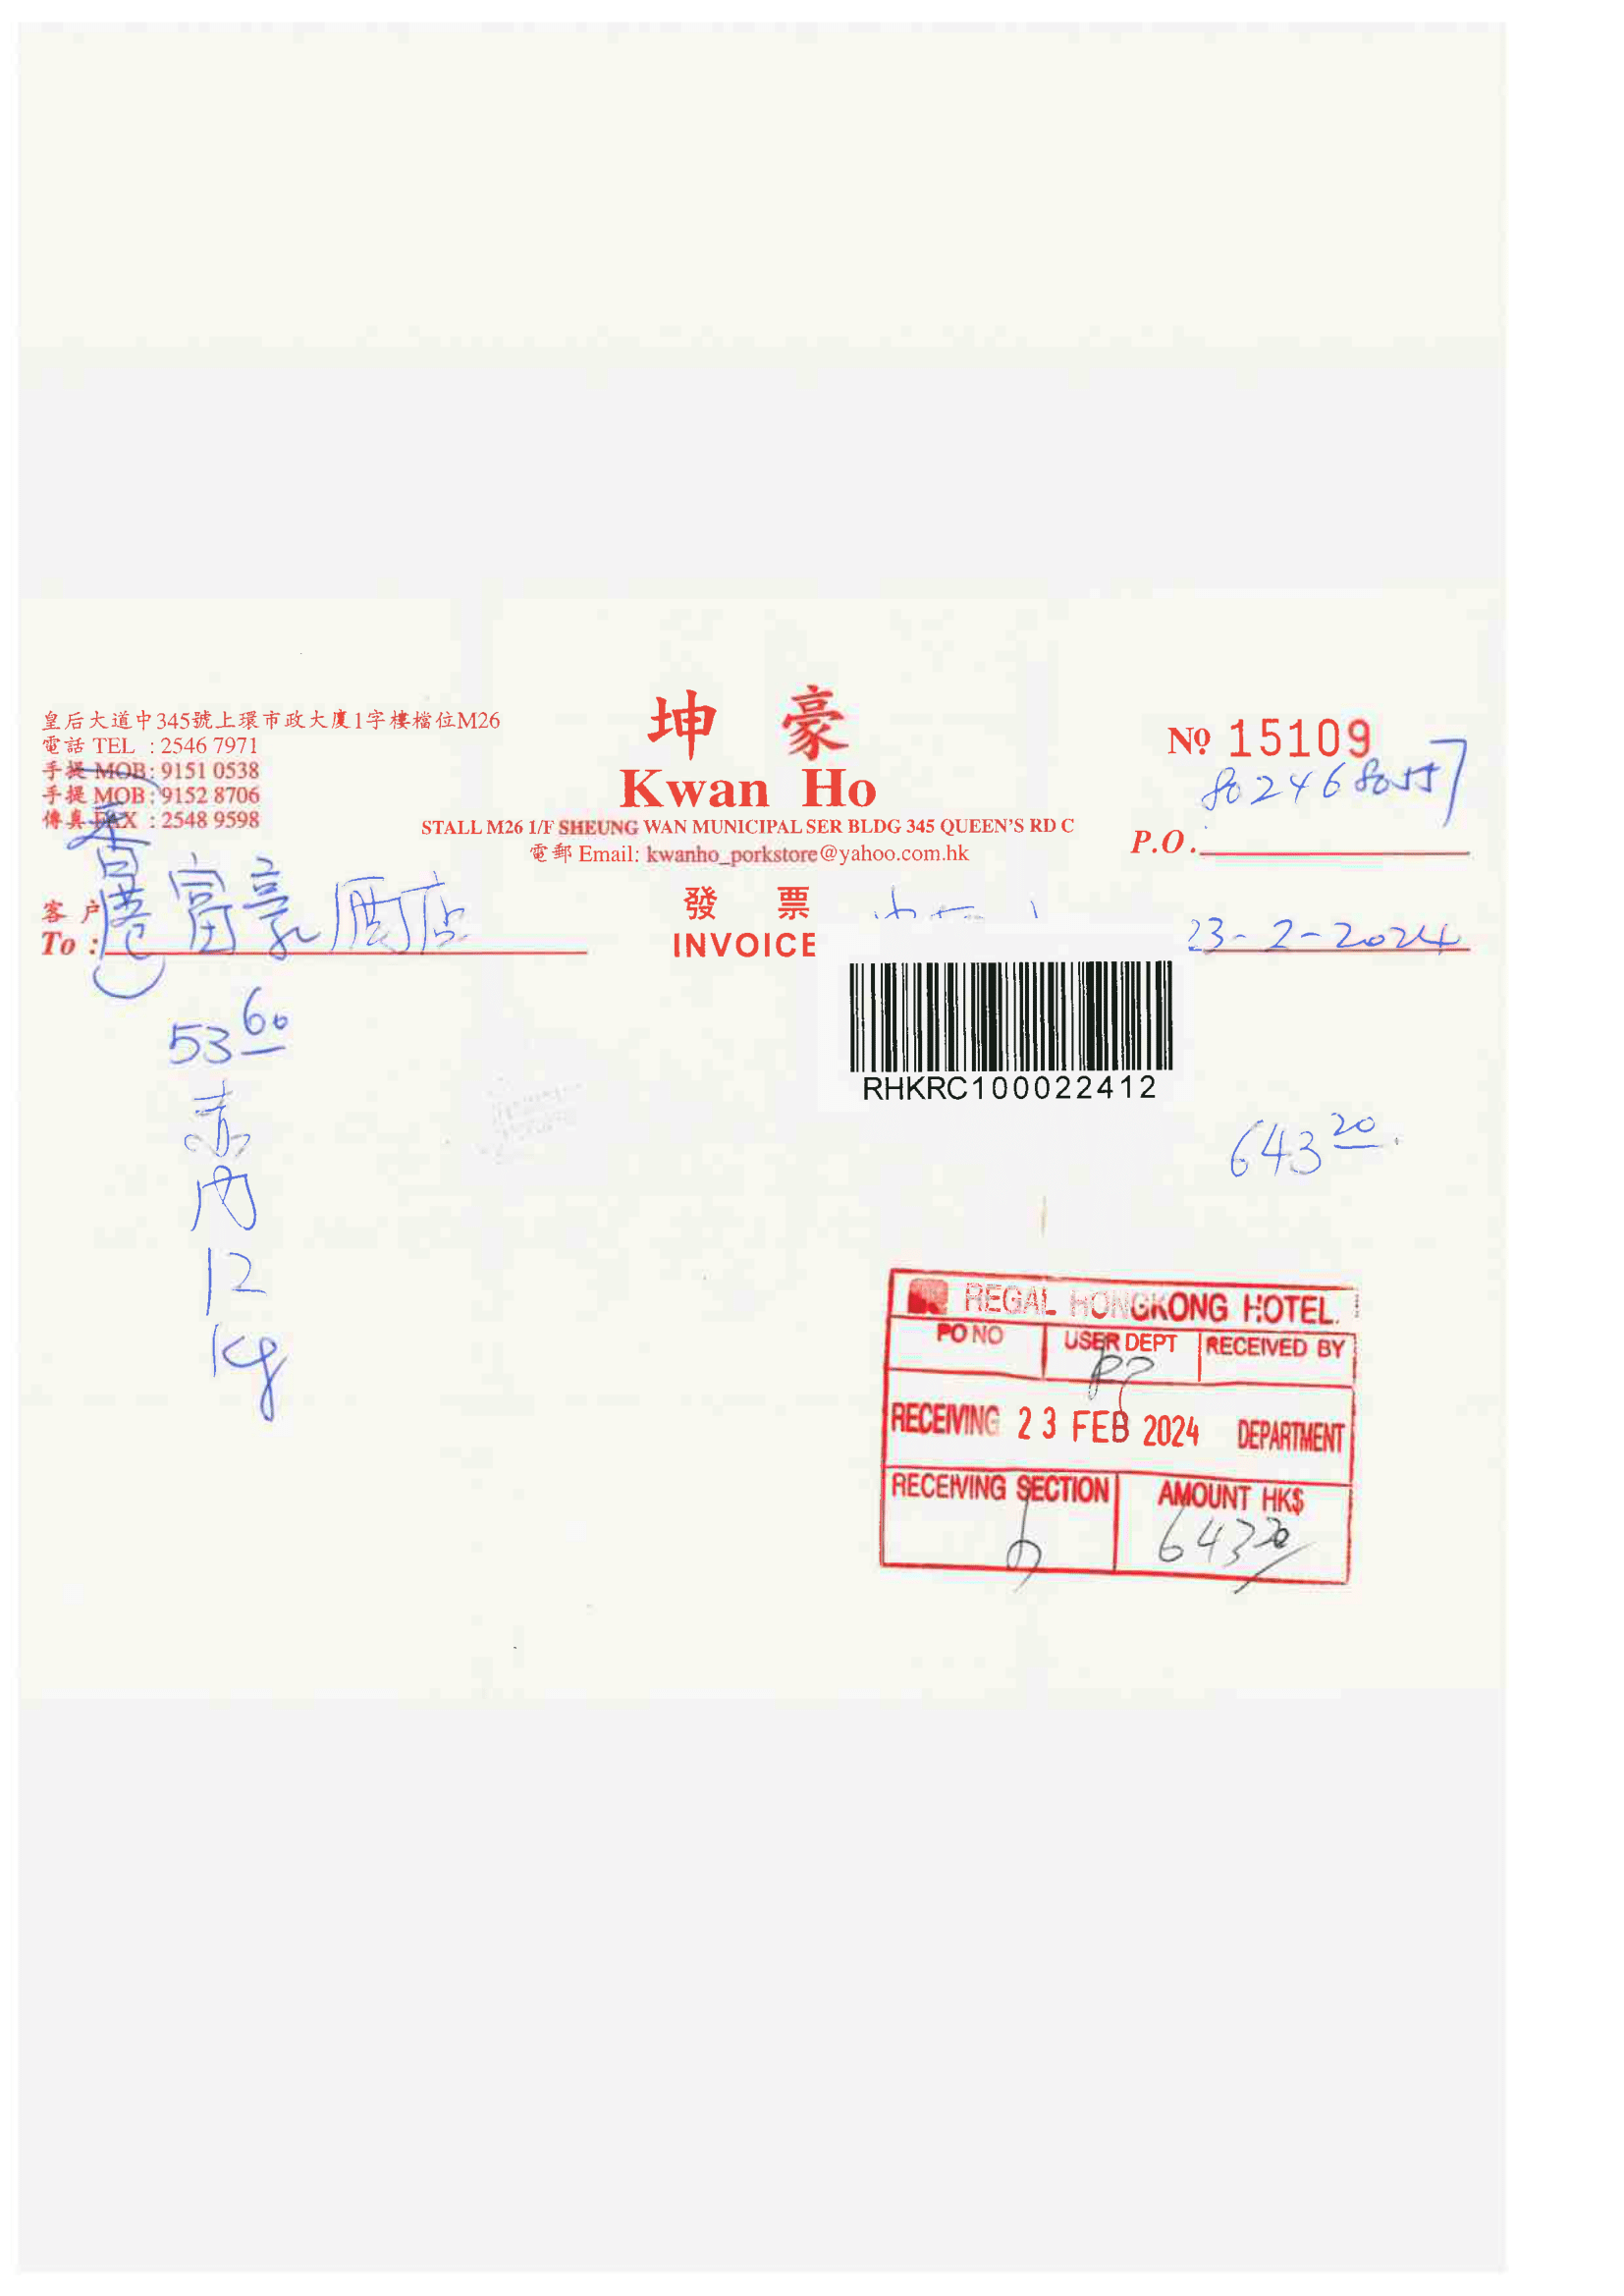 皇后大道中345號上環市政大廈1字樓檔位M26
電話 TEL : 2546 7971
手提 MOB: 9151 0538
手提 MOB: 9152 8706
傳真 FAX : 2548 9598
坤 豪
Kwan Ho
STALL M26 1/F SHEUNG WAN MUNICIPAL SER BLDG 345 QUEEN'S RD C
電郵 Email: kwanho_porkstore@yahoo.com.hk
Nº 15109
8024680557
P.O.
客户
To :
香港富豪酒店
發 票
INVOICE
23-2-2024
RHKRC100022412
53 60
赤
肉
12
kg
643 20
REGAL HONGKONG HOTEL
PO NO USER DEPT RECEIVED BY
RECEIVING 23 FEB 2024 DEPARTMENT
RECEIVING SECTION AMOUNT HK$
643 20